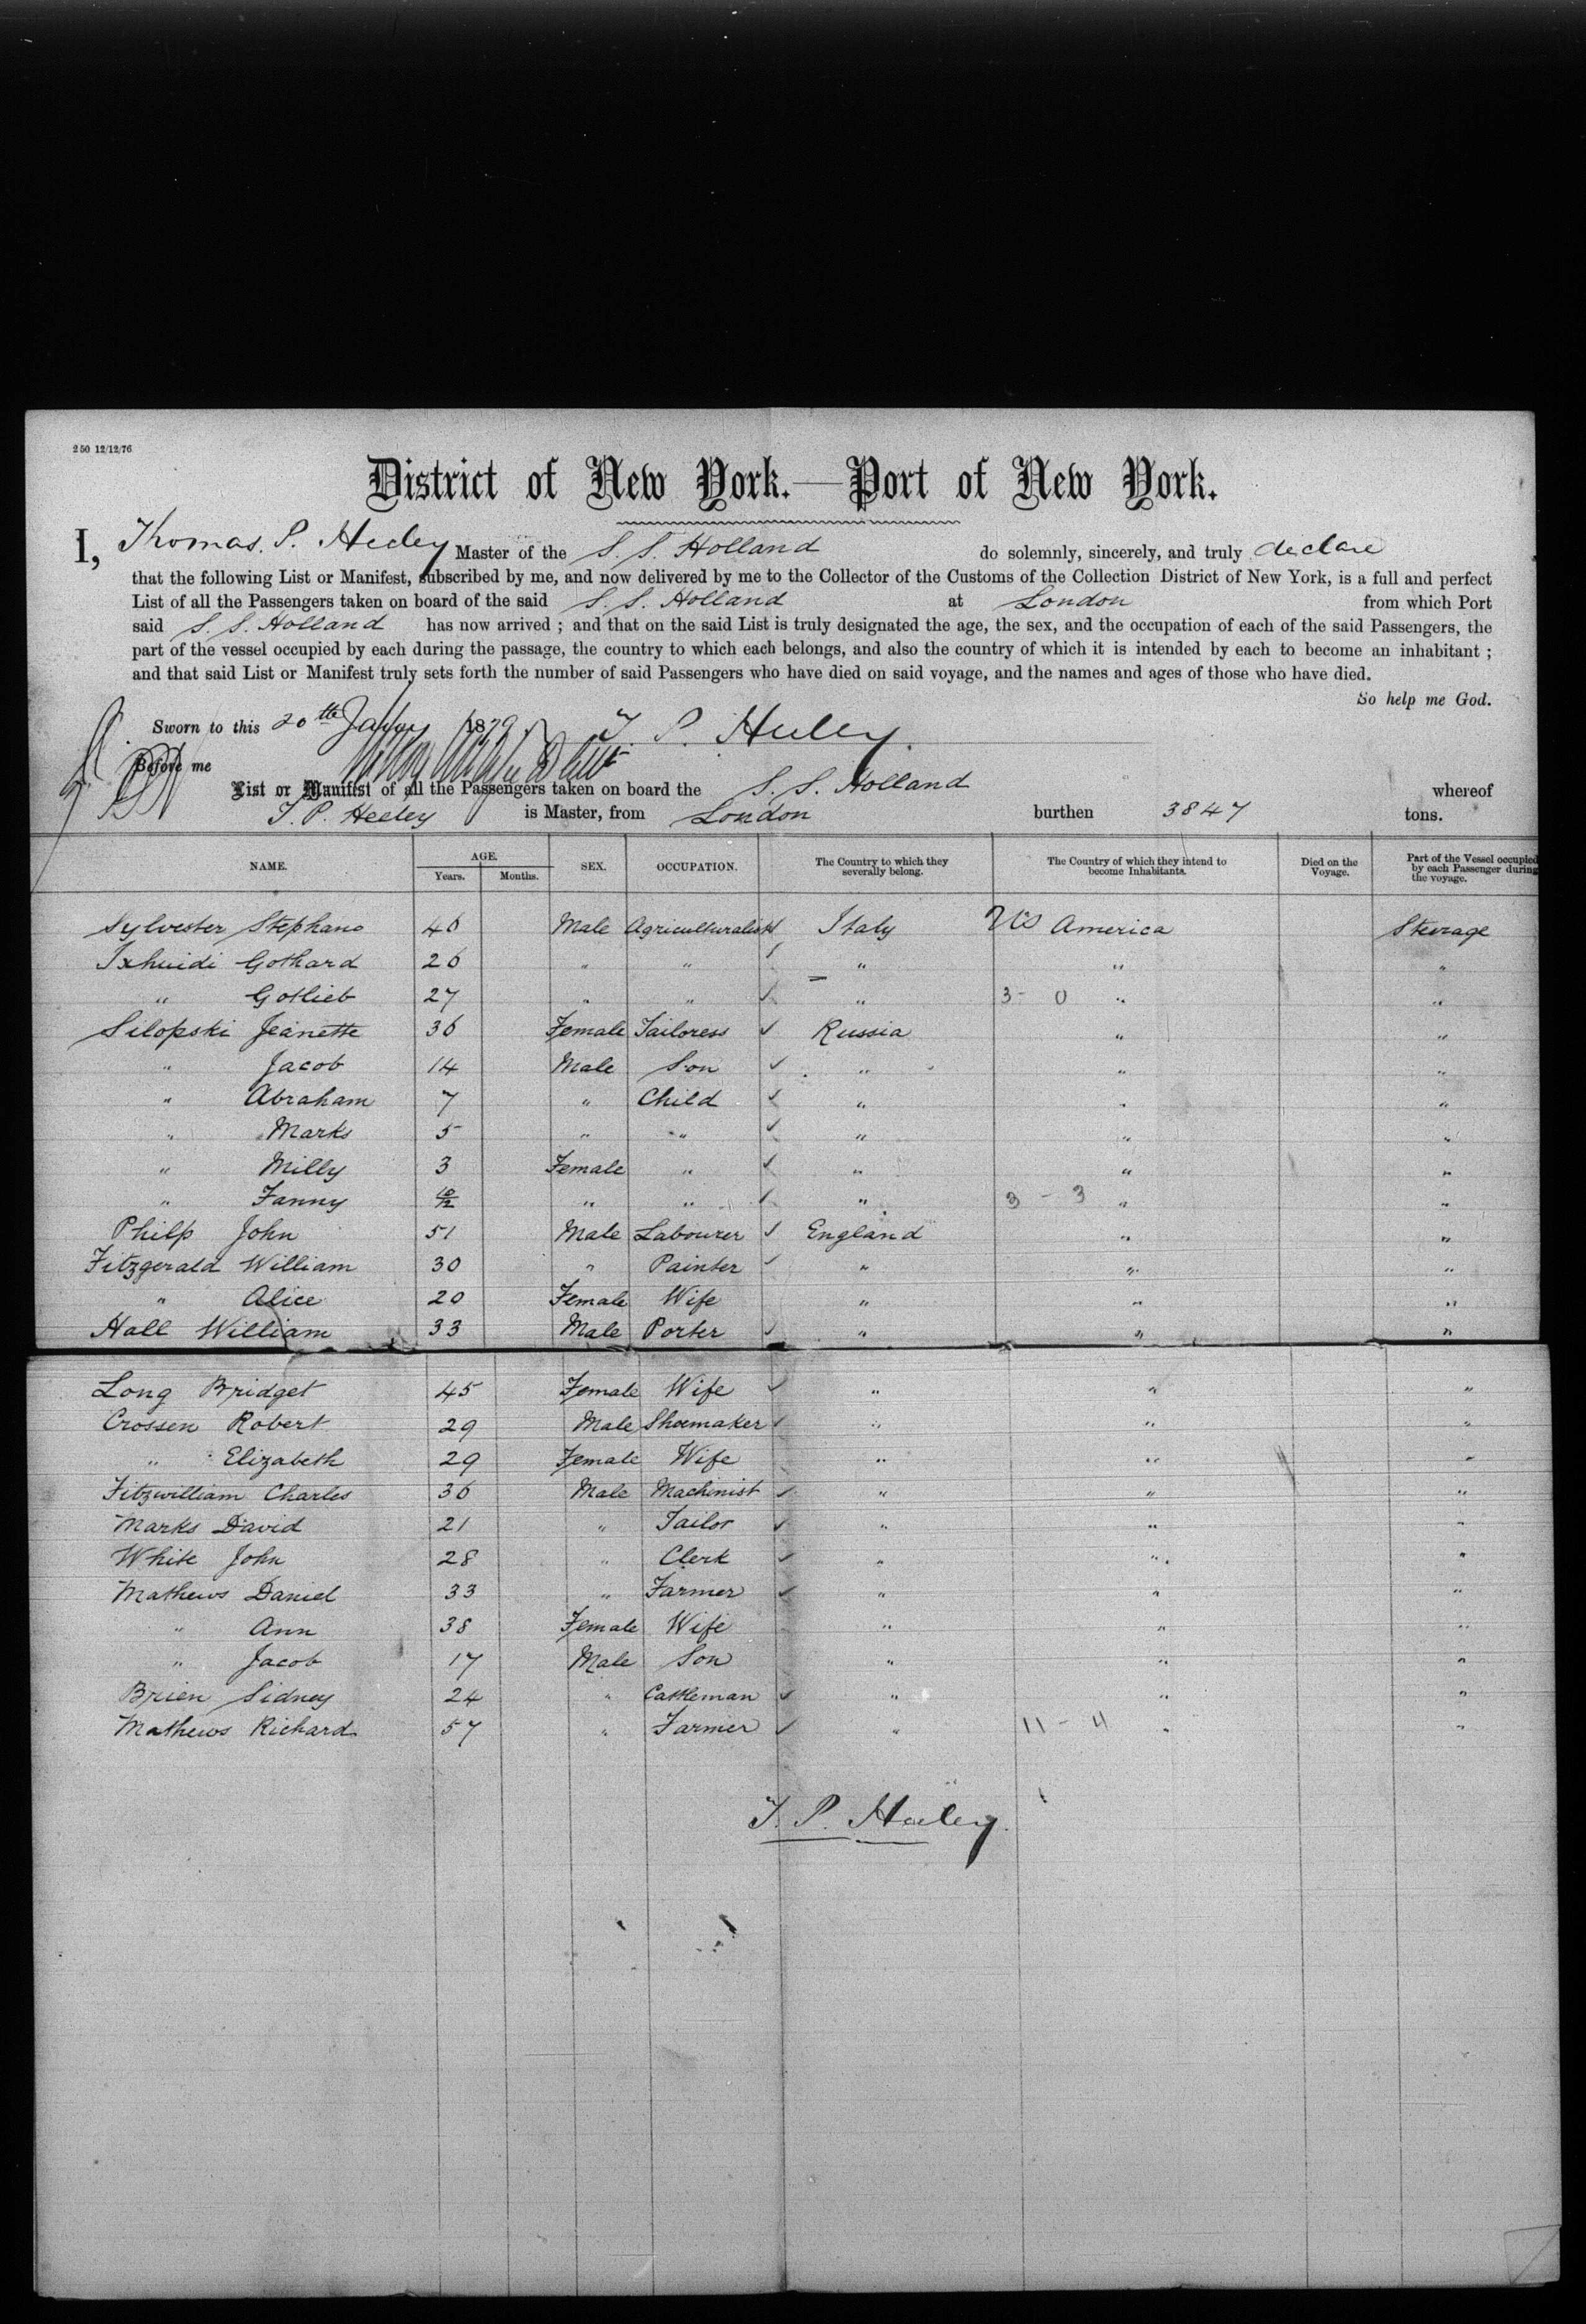 250 12/12/76
District of New York.—Port of New York.
I, Thomas. P. Heeley Master of the S. S. Holland do solemnly, sincerely, and truly declare
that the following List or Manifest, subscribed by me, and now delivered by me to the Collector of the Customs of the Collection District of New York, is a full and perfect
List of all the Passengers taken on board of the said S. S. Holland at London from which Port
said S. S. Holland has now arrived ; and that on the said List is truly designated the age, the sex, and the occupation of each of the said Passengers, the
part of the vessel occupied by each during the passage, the country to which each belongs, and also the country of which it is intended by each to become an inhabitant ;
and that said List or Manifest truly sets forth the number of said Passengers who have died on said voyage, and the names and ages of those who have died.
So help me God.
Sworn to this 20th 1879 T. P. Heeley.
Before me
List or Manifest of all the Passengers taken on board the S. S. Holland whereof
T. P. Heeley is Master, from London burthen 3847 tons.
NAME. AGE. Years. Months. SEX. OCCUPATION. The Country to which they severally belong. The Country of which they intend to become Inhabitants. Died on the Voyage. Part of the Vessel occupied by each Passenger during the voyage.
Sylvester Stephano 46 Male Agriculturalist ✓ Italy US America Steerage
Gothard 26 " " ✓ " " "
" Gotlieb 27 " " ✓ " 3 - 0 " "
Silopski Jeanette 36 Female Tailoress ✓ Russia " "
" Jacob 14 Male Son ✓ " " "
" Abraham 7 " Child ✓ " " "
" Marks 5 " " ✓ " " "
" Milly 3 Female " ✓ " " "
" Fanny 10/12 " " ✓ " 3 - 3 " "
Philp John 51 Male Labourer ✓ England " "
Fitzgerald William 30 " Painter ✓ " " "
" Alice 20 Female Wife " " "
Hall William 33 Male Porter ✓ " " "
Long Bridget 45 Female Wife ✓ " " "
Crossen Robert 29 Male Shoemaker ✓ " " "
" Elizabeth 29 Female Wife " " "
Fitzwilliam Charles 36 Male Machinist ✓ " " "
Marks David 21 " Tailor ✓ " " "
White John 28 " Clerk ✓ " " "
Mathews Daniel 33 " Farmer ✓ " " "
" Ann 38 Female Wife " " "
" Jacob 17 Male Son " " "
Brien Sidney 24 " Cattleman ✓ " " "
Mathews Richard 57 " Farmer ✓ " 11 - 4 " "
T. P. Heeley.